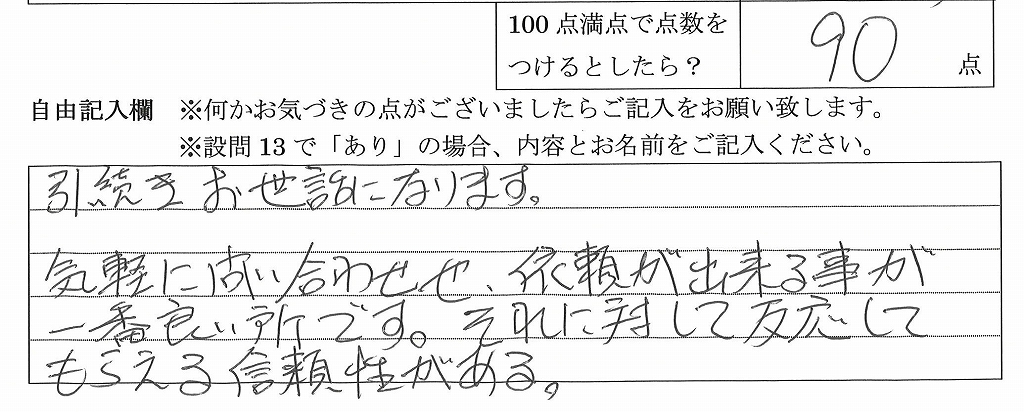 100点満点で点数を
つけるとしたら？
90 点
自由記入欄 ※何かお気づきの点がございましたらご記入をお願い致します。
※設問13で「あり」の場合、内容とお名前をご記入ください。
引続きお世話になります。
気軽に問い合わせせ、依頼が出来る事が
一番良い所です。それに対して反応して
もらえる信頼性がある。